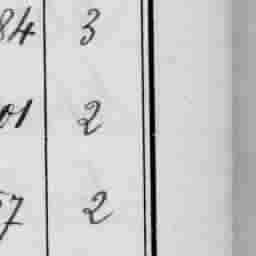 84 3
01 2
57 2